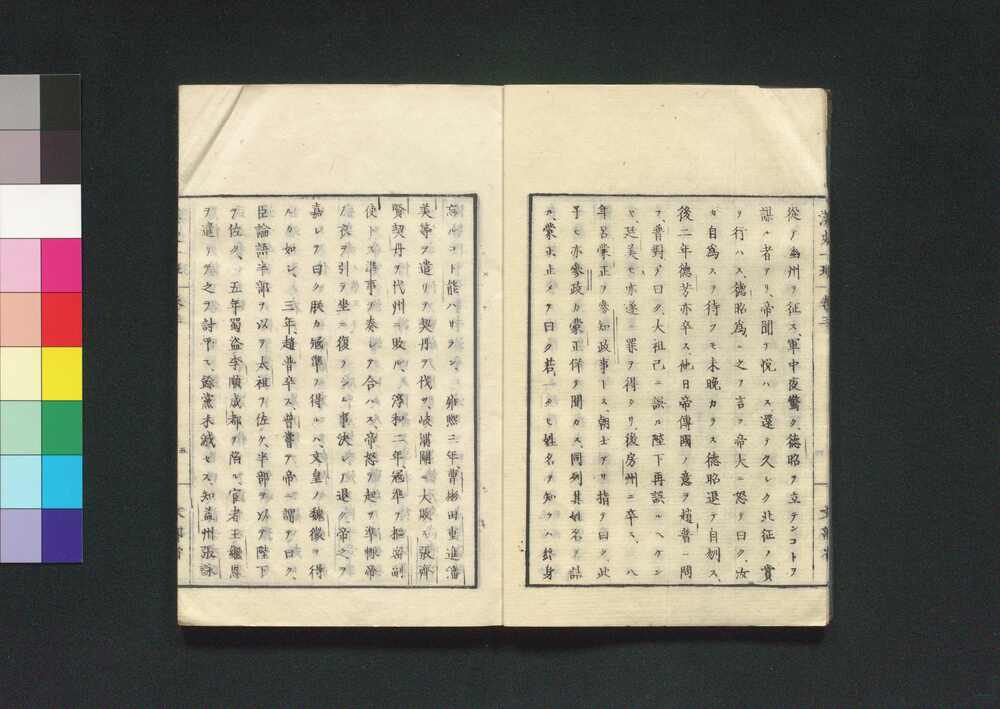 漢史一班 卷三
從テ幽州ヲ征ス、軍中夜驚ク、德昭ヲ立テンコトヲ
謀ル者アリ、帝聞テ悅ハス還テ久シク北征ノ賞
ヲ行ハス、德昭爲ニ之ヲ言フ帝大ニ怒テ曰ク、汝
カ自爲スヲ待フモ未晩カラス德昭退テ自刎ス、
後二年德芳亦卒ス、他日帝傳國ノ意ヲ趙普ニ問
フ、普對テ曰ク、大祖已ニ誤ル陛下再誤ルヘケン
ヤ、廷美モ亦遂ニ罪ヲ得タリ、後房州ニ卒ス、八
年呂蒙正ヲ參知政事トス、朝士アリ指テ曰ク、此
子モ亦參政カ蒙正佯テ聞カス、同列其姓名ヲ詰
ル、蒙正止メテ曰ク若一タヒ姓名ヲ知ラハ終身
忘ルコト能ハサラン、雍熙三年、曹彬田重進潘
美等ヲ遣リテ契丹ヲ伐ツ、岐溝關ニ大敗ス張齊
賢契丹ヲ代州ニ敗ル、淳和二年、寇準ヲ樞密副
使トス準事ヲ奏シテ合ハス、帝怒テ起ツ準帝
ノ衣ヲ引テ坐ニ復ラシム事決シテ退ク、帝之ヲ
嘉シテ曰ク朕カ寇準ヲ得ルハ、文皇ノ魏徵ヲ得
ルカ如シ、三年、趙普卒ス普嘗テ帝ニ謂テ曰ク、
臣論語半部ヲ以テ太祖ヲ佐ケ、半部ヲ以テ陛下
ヲ佐ク、五年蜀盜李順成都ヲ陷ル、宦者王繼恩
ヲ遣リテ之ヲ討平ス、餘黨未滅セス、知益州張詠